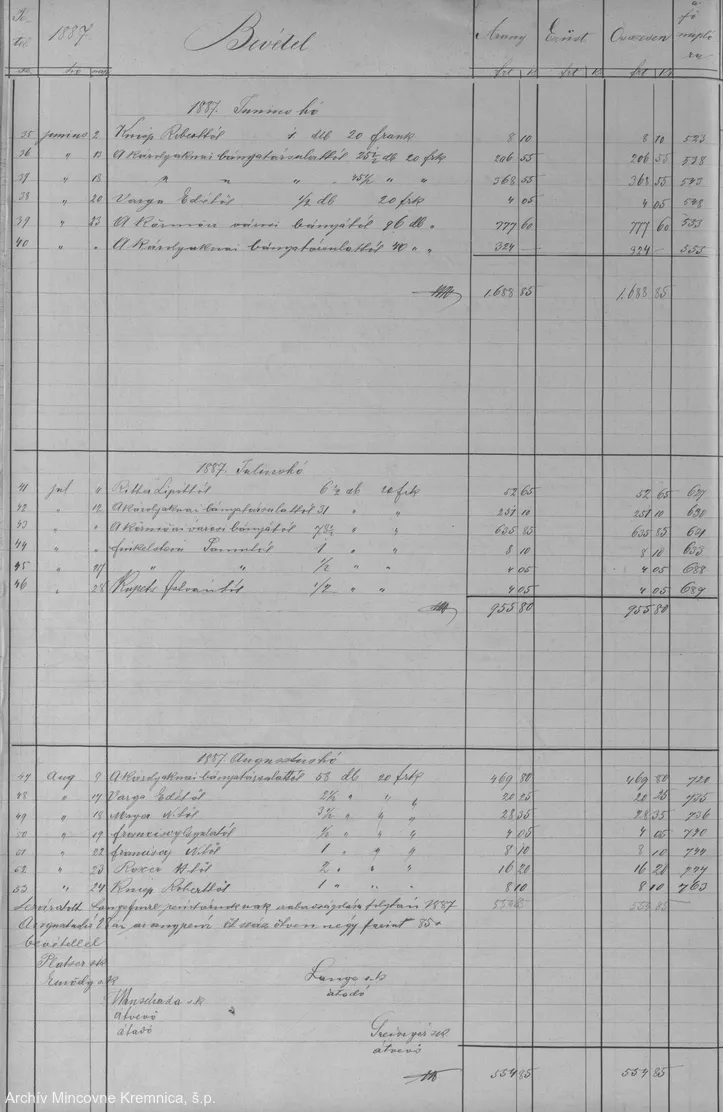 1887. Bevétel Arany Ezüst Összesen
frt kr frt kr frt kr
1887. Junius hó
35 junius 2 Knop Roberttól 1 db 20 frank 8 10 8 10 523
36 " 13 A károlyaknai bányatársulattól 25 1/2 db 20 frk 206 55 206 55 538
37 " 18 " " " 45 1/2 " " 368 55 368 55 543
38 " 20 Varga Edétől 1/2 db 20 frk 4 05 4 05 548
39 " 23 A körmöci városi bányától 96 db " 777 60 777 60 553
40 " " A károlyaknai bányatársulattól 40 " " 324 — 324 — 555
1,688 85 1,688 85
1887. Julius hó
41 jul 11 Lipóttól 6 1/2 db 20 frk 52 65 52 65 627
42 " 12 A károlyaknai bányatársulattól 31 " " 251 10 251 10 630
43 " " A körmöci városi bányától 78 1/2 " " 635 85 635 85 631
44 " " 1 " " 8 10 8 10 633
45 " 27 " " 1/2 " " 4 05 4 05 688
46 " 28 Istvántól 1/2 " " 4 05 4 05 689
955 80 955 80
1887. Augusztus hó
47 Aug 8 A károlyaknai bányatársulattól 58 db 20 frk 469 80 469 80 720
48 " 17 Varga Edétől 2 1/2 " " 20 25 20 25 735
49 " 18 Maya N.től 3 1/2 " " 28 35 28 35 736
50 " 19 1/2 " " 4 05 4 05 740
51 " 22 N.től 1 " " 8 10 8 10 744
52 " 23 Roxer N.től 2 " " 16 20 16 20
53 " 24 Knop Roberttól 1 " " 8 10 8 10 763
554 85 554 85
1887 öt száz ötven négy forint 85
bevétellel
s.k
s.k Lange s.k
átadó
Wenschada s.k
átvevő
átadó
s.k
átvevő
554 85 554 85
Archív Mincovne Kremnica, š.p.